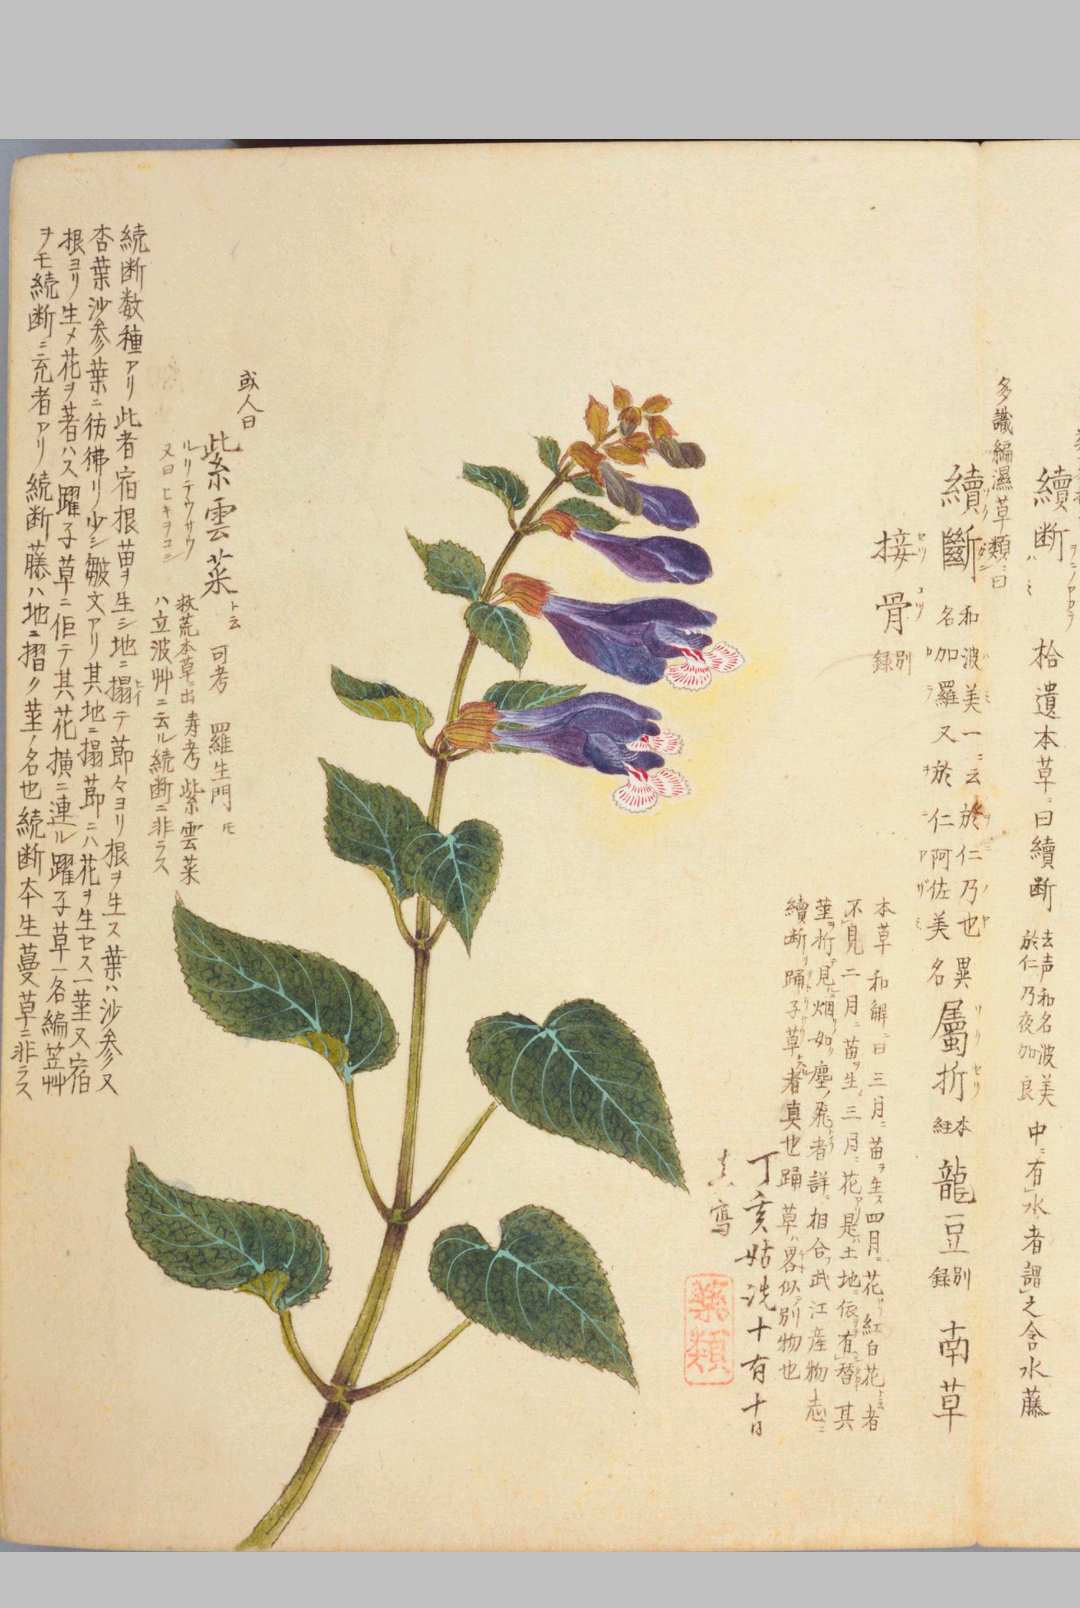 續断
拾遺本草ニ曰續断
去声和名波美
於仁乃夜加良
中ニ有水者謂之含水藤
多識編濕草類ニ曰
續斷
和波美一ニ云於仁乃也
名加羅又於仁阿佐美
異名
屬折
本註
龍豆
別録
南草
接骨
別録
本草和解ニ曰三月ニ苗ヲ生ス四月ニ花サク紅白花ト云者
不見二月ニ苗ヲ生シ三月ニ花アリ是ハ土地ニ依有替其
莖ヲ折見ルニ烟ノ如ク塵ノ飛者詳ニ相合フ武江産物志ニ
續断ヲトリサウ踊子草ハ者真也踊草ハ畧似テ別物也
丁亥姑洗十有十日
真寫
藥類
或人曰
紫雲菜
ト云
ルリテウサウ
又曰ヒキヲコシ
可考
羅生門ニモ
救荒本草ニ出
青考紫雲菜
ハ立波艸ニ云ル続断ニ非ラス
続断数種アリ此者宿根苗ヲ生シ地ニ搨テ節々ヨリ根ヲ生ス葉ハ沙参又
杏葉沙参葉ニ彷彿リ少シ皺文アリ其地ニ搨節ニハ花ヲ生セス一莖又宿
根ヨリ生メ花ヲ著ハス躍子草ニ似テ其花横ニ連ル躍子草一名編笠艸
ヲモ続断ニ充者アリ続断藤ハ地ニ摺ク莖ノ名也続断本生蔓草ニ非ラス